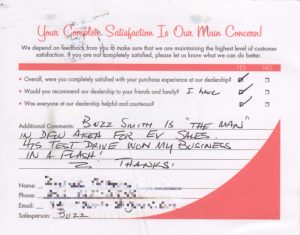 Your Complete Satisfaction Is Our Main Concern!
We depend on feedback from you to make sure that we are maintaining the highest level of customer
satisfaction. If you are not completely satisfied, please let us know what we can do better.
YES NO
• Overall, were you completely satisfied with your purchase experience at our dealership?
• Would you recommend our dealership to your friends and family? I have
• Was everyone at our dealership helpful and courteous?
Additional Comments: BUZZ SMITH IS "THE MAN"
IN DFW AREA FOR EV SALES.
HIS TEST DRIVE WON MY BUSINESS
IN A FLASH!
THANKS!
Name:
Phone:
Email:
Salesperson: BUZZ